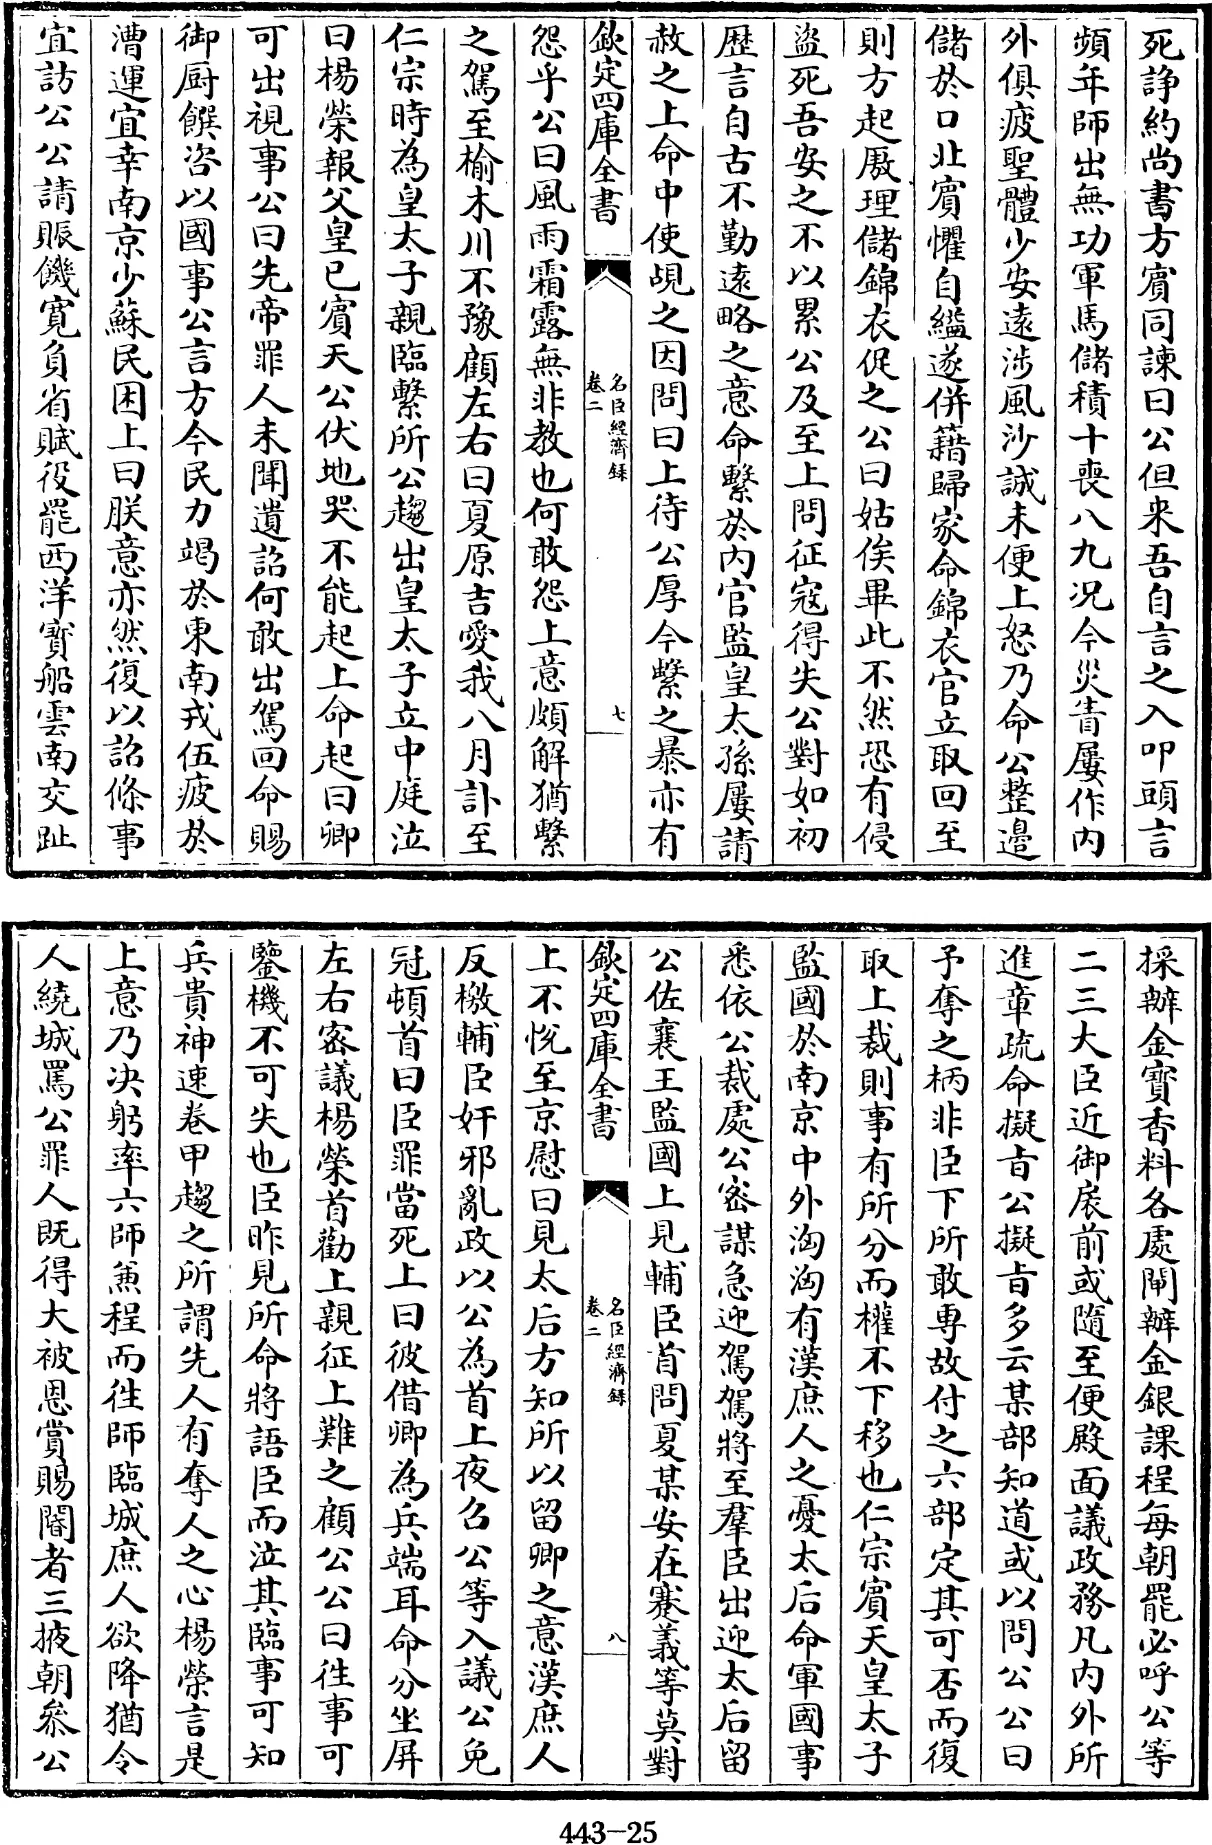 死諍約尚書方賓同諫曰公但来吾自言之入叩頭言
頻年師出無功軍馬儲積十喪八九况今災眚屢作内
外俱疲聖體少安遠涉風沙誠未便上怒乃命公整邉
儲於口北賓懼自縊遂併籍歸家命錦衣官立取回至
則方起厫理儲錦衣促之公曰姑俟畢此不然恐有侵
盜死吾安之不以累公及至上問征宼得失公對如初
歴言自古不勤逺略之意命繫於内官監皇太孫屢請
赦之上命中使覘之因問曰上待公厚今繫之暴亦有
欽定四庫全書
名臣經濟録
卷二
七
怨乎公曰風雨霜露無非教也何敢怨上意頗解猶繫
之駕至榆木川不豫顧左右曰夏原吉愛我八月訃至
仁宗時為皇太子親臨繫所公趨出皇太子立中庭泣
曰楊榮報父皇已賓天公伏地哭不能起上命起曰卿
可出視事公曰先帝罪人未聞遺詔何敢出駕回命賜
御厨饌咨以國事公言方今民力竭於東南戎伍疲於
漕運宜幸南京少蘇民困上曰朕意亦然復以詔條事
宜訪公公請賑饑寛負省賦役罷西洋寳船雲南交趾
採辦金寶香料各處閘辦金銀課程毎朝罷必呼公等
二三大臣近御扆前或隨至便殿面議政務凡内外所
進章疏命擬㫖公擬㫖多云某部知道或以問公公曰
予奪之柄非臣下所敢専故付之六部定其可否而復
取上裁則事有所分而權不下移也仁宗賓天皇太子
監國於南京中外洶洶有漢庶人之憂太后命軍國事
悉依公裁處公宻謀急迎駕駕將至羣臣出迎太后留
公佐襄王監國上見輔臣首問夏某安在蹇義等莫對
欽定四庫全書
名臣經濟録
卷二
八
上不悅至京慰曰見太后方知所以留卿之意漢庶人
反檄輔臣奸邪亂政以公為首上夜召公等入議公免
冠頓首曰臣罪當死上曰彼借卿為兵端耳命分坐屏
左右宻議楊榮首勸上親征上難之顧公公曰徃事可
鑒機不可失也臣昨見所命將語臣而泣其臨事可知
兵貴神速卷甲趨之所謂先人有奪人之心楊榮言是
上意乃决躬率六師兼程而徃師臨城庶人欲降猶令
人繞城罵公罪人既得大被恩賞賜閽者三掖朝叅公
443-25